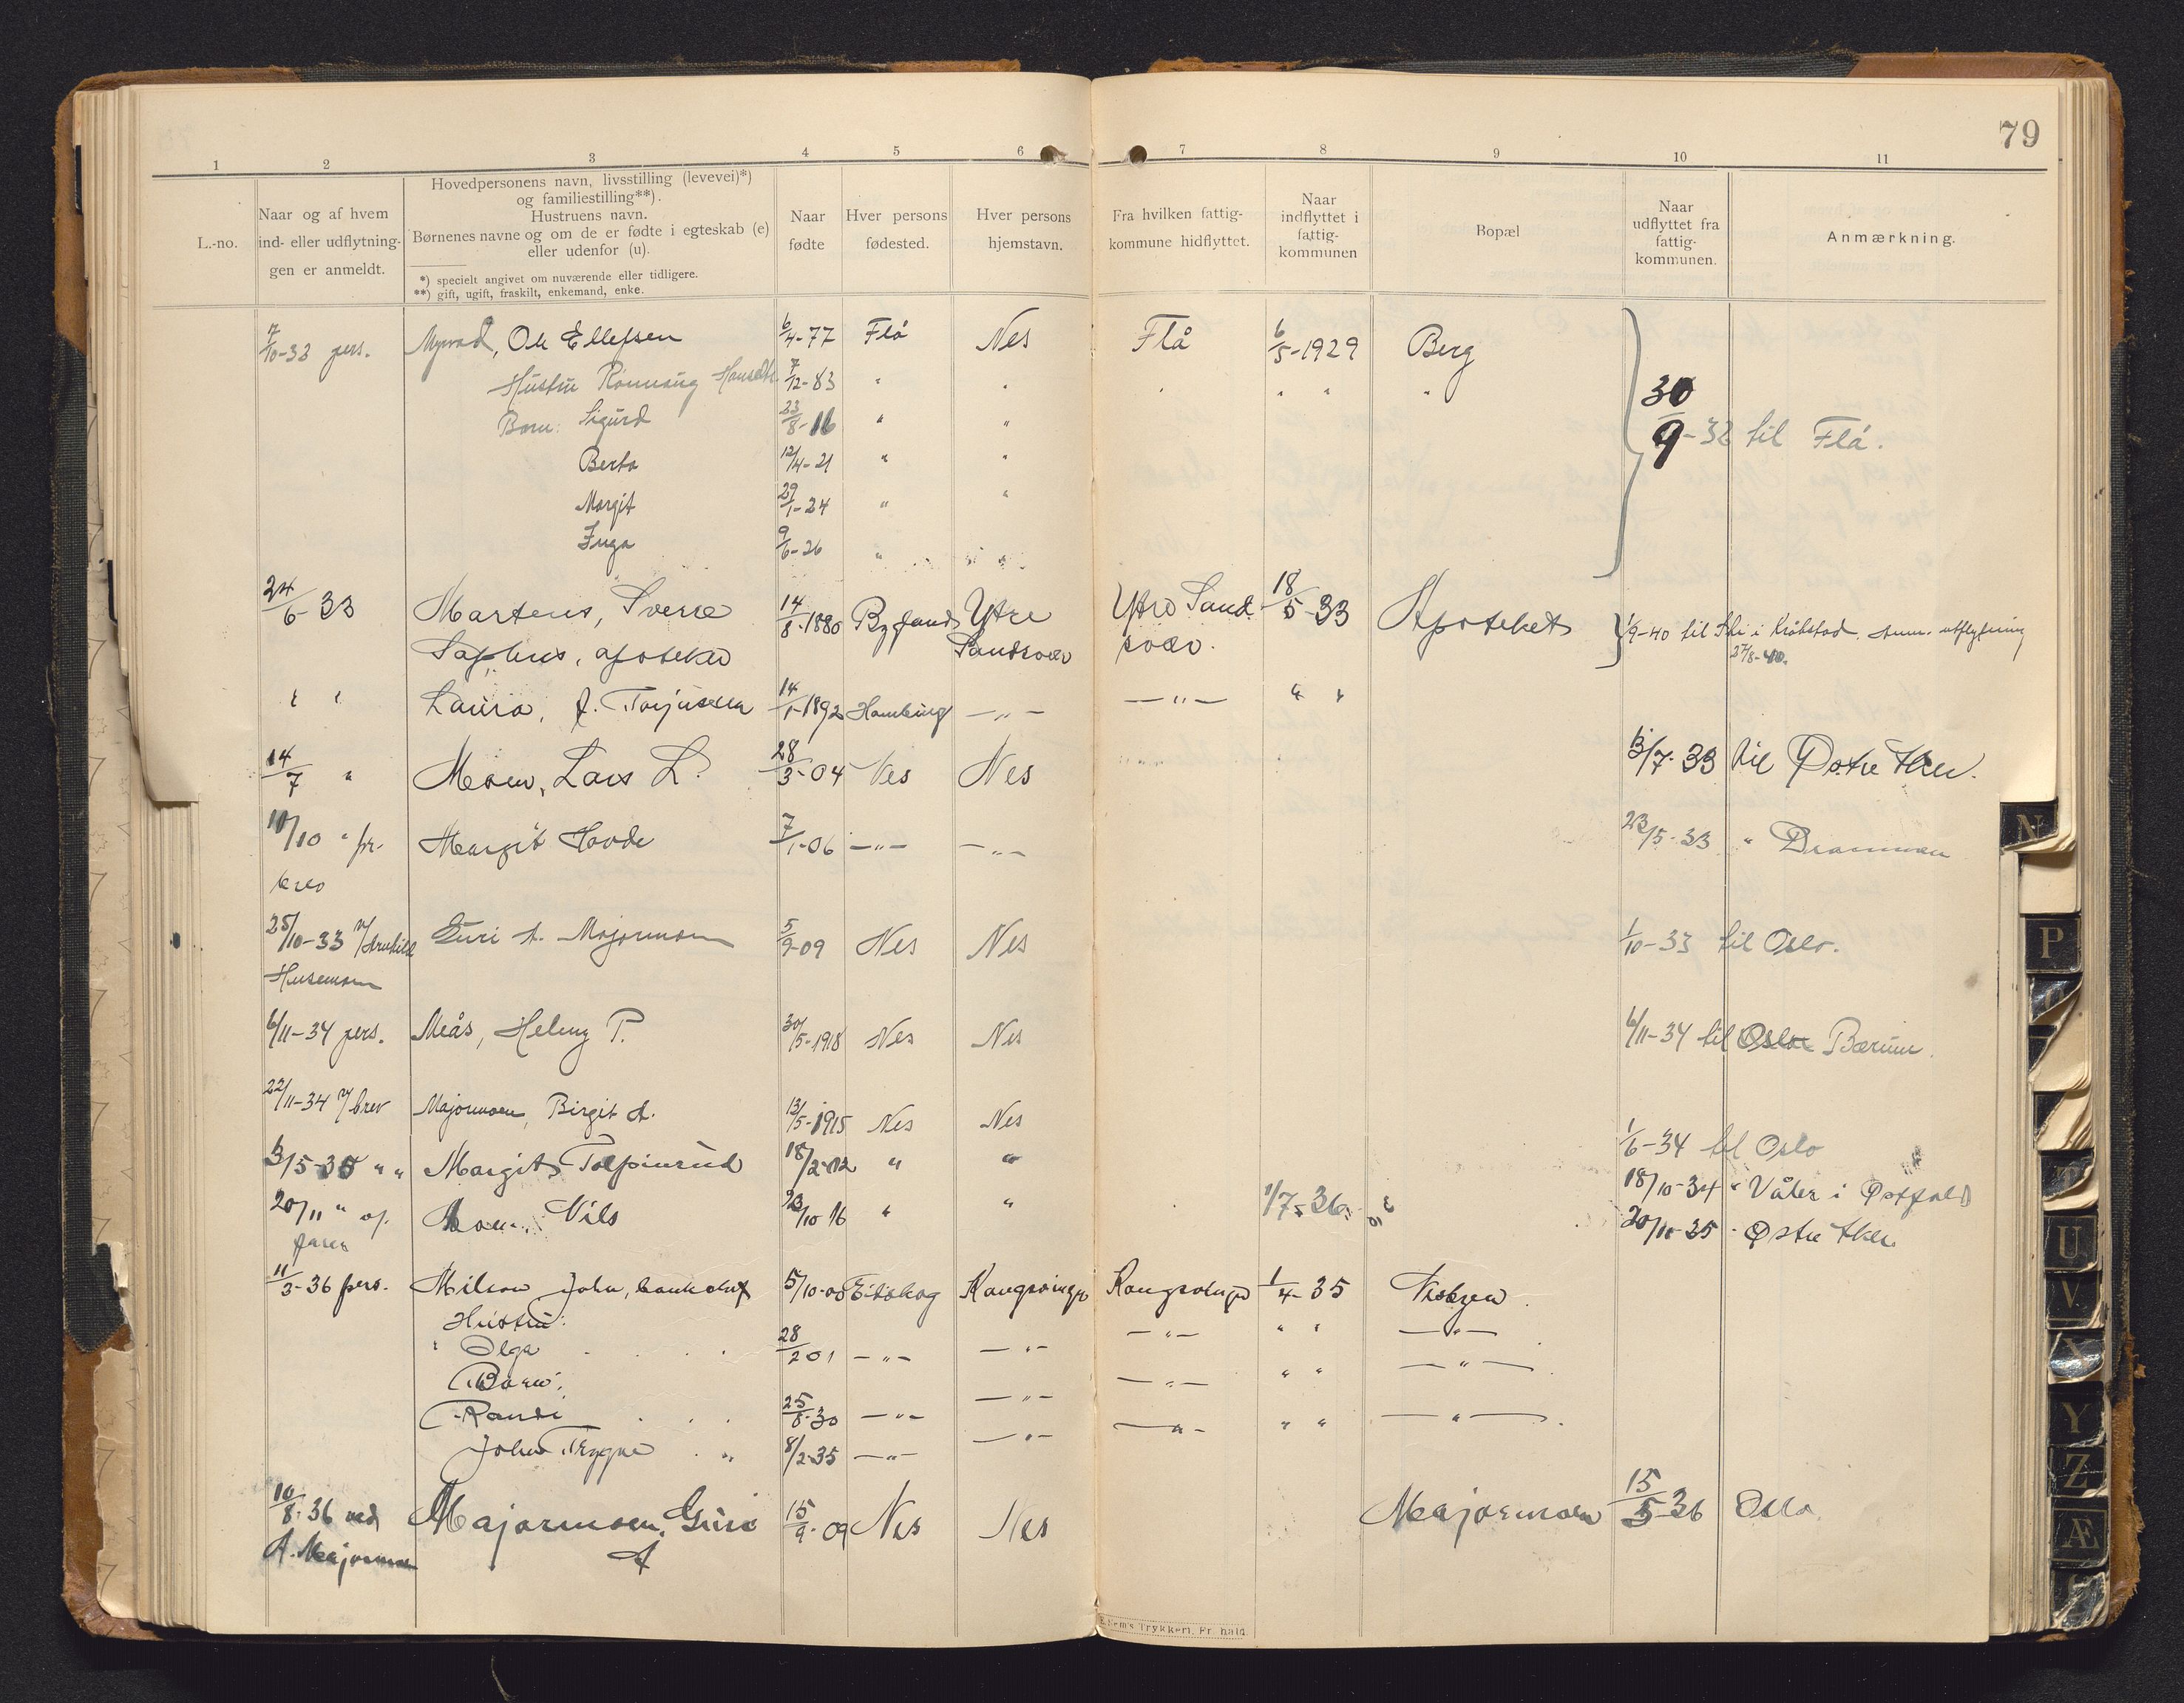 79
1 2 3 4 5 6 7 8 9 10 11
L.-no.
Naar og af hvem
ind- eller udflytnin-
gen er anmeldt.
Hovedpersonens navn, livsstilling (levevei)*)
og familiestilling**).
Hustruens navn.
Børnenes navne og om de er fødte i egteskab (e)
eller udenfor (u).
*) specielt angivet om nuværende eller tidligere.
**) gift, ugift, fraskilt, enkemand, enke.
Naar
fødte
Hver persons
fødested.
Hver persons
hjemstavn.
Fra hvilken fattig-
kommune hidflyttet.
Naar
indflyttet i
fattig-
kommunen
Bopæl
Naar
udflyttet fra
fattig-
kommunen.
Anmærkning.
7/10-32 pers. Myrvad, Ole Ellefsen 6/4-77 Flå Nes Flå 6/5-1929 Berg
Hustru Rønnaug 7/12-83 " " " " " "
Barn: Sigurd 23/8-16 " " 30/9-32 til Flå.
Berta 12/4-21 " "
Margit 29/1-24 " "
Inga 9/6-26 "
24/6-33 Martens, Sverre 14/8-1880 Bygland Ytre Ytre Sand- 18/5-33 Apoteket 1/9-40 til Ski i Kråkstad. Anm. utflytning
Sophus, apoteker Sandsvær svær. 27/8-40.
" " Laura, f. Torjussen 14/1-1892 Hamburg —"— —"— " "
14/7 " Moen, Lars L. 28/3-04 Nes Nes 13/7-33 til Østre Aker.
10/10 " pr. Margit Hovde 7/1-06 —"— —"— 23/5-33 " Drammen
brev
25/10-33 v/ Guri A. Majormoen 5/9-09 Nes Nes 1/10-33 til Oslo.
Husemoen
6/11-34 pers. Meås, Helmy P. 30/5-1918 Nes Nes 6/11-34 til Oslo Bærum.
22/11-34 v/ brev Majormoen, Birgit A. 13/5-1915 Nes Nes 1/6-34 til Oslo
3/5-35 " " Margit Tolpinrud 18/2-12 " " 18/10-34 " Våler i Østfold
20/11 " af Moen, Nils 23/10 16 " " 1/7-36 20/11-35 " Østre Aker
faren
11/3-36 pers. Milson John, banksjef 5/10-00 Eidskog Kongsvinger Kongsvinger 1/4-35 Nesbyen.
Hustru:
" Olga 28/2 01 —"— —"— —"— " " —"—
Barn:
Randi 25/8-30 —"— —"— —"— " " —"—
John Trygve " 8/2-35 —"— —"— —"— " " —"—
10/8-36 ved Majormoen, Guri 15/9-09 Nes Nes Majormoen 15/5-36 Oslo.
A. Majormoen A
N
P
T
U
V
X
Y
Z
Æ